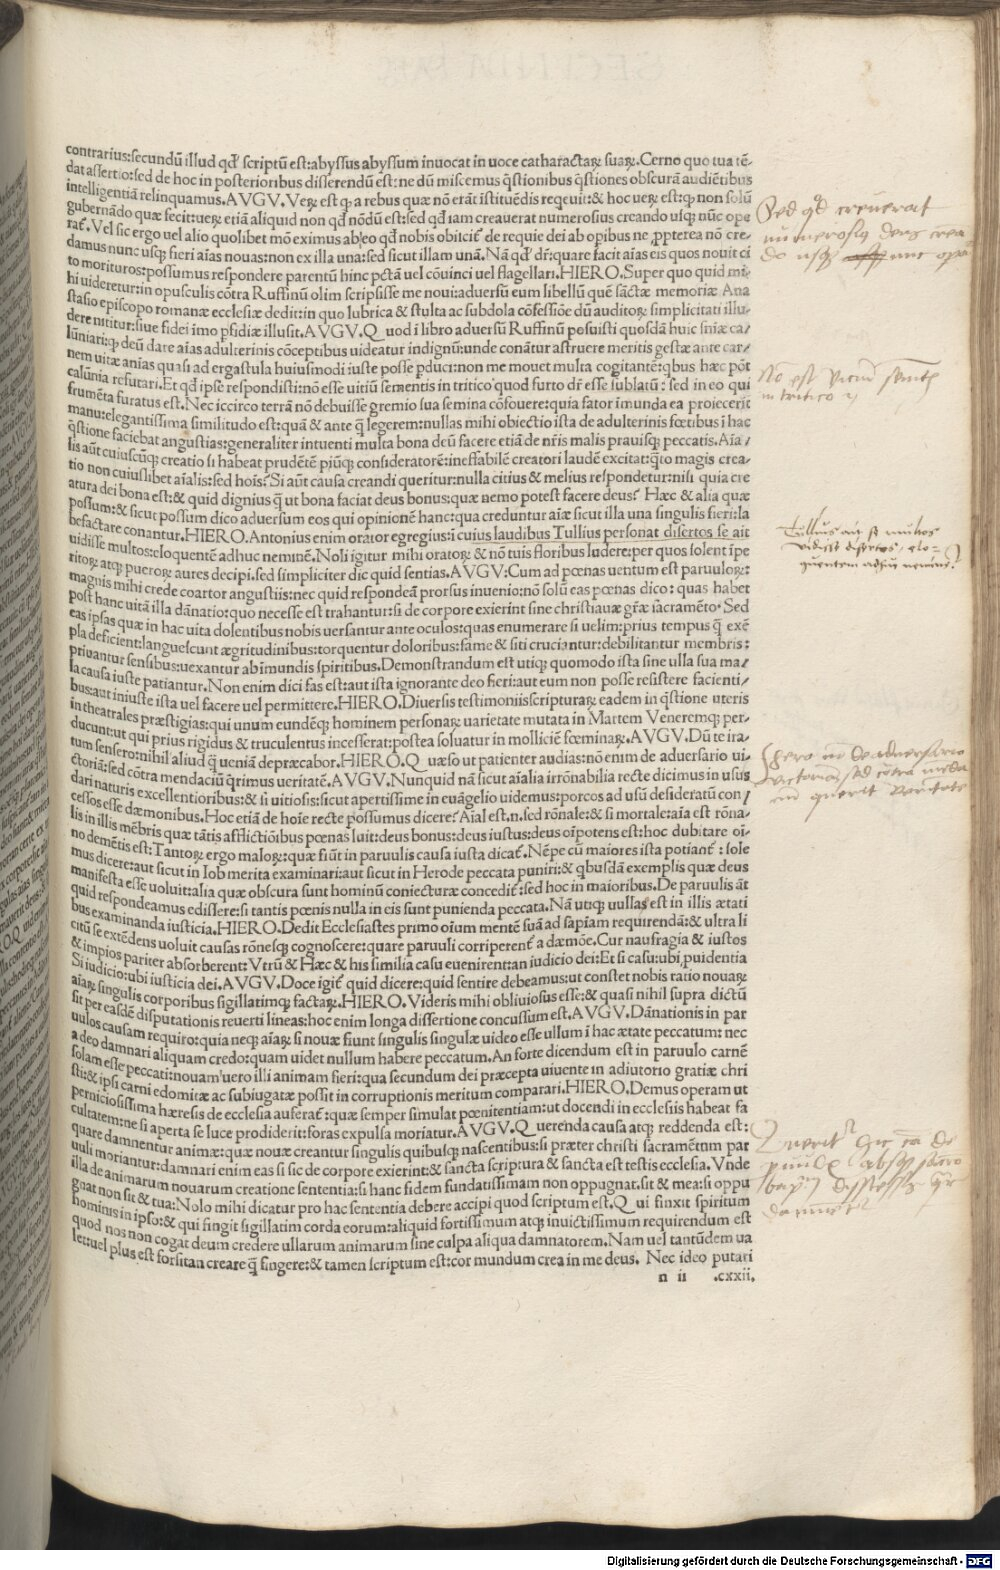 contrarius:secundũ illud qď scriptũ est:abyssus abyssum inuocat in uoce catharactaꝝ suaꝝ.Cerno quo tua tẽ-
dat assertio:sed de hoc in posterioribus disserendũ est:ne dũ miscemus q̃stionibus q̃stiones obscurã audiẽtibus
intelligentiã relinquamus.AVGV.Veꝝ est ꝙ a rebus quæ nõ erãt istituẽdis reqeuit:& hoc ueꝝ est:ꝙ non solũ
gubernãdo quæ fecit:ueꝝ etiã aliquid non qď nõdũ est:sed qď iam creauerat numerosius creando usqꝫ nũc ope
rat᷑. Vel sic ergo uel alio quolibet mõ eximus ab eo qď nobis obiicit᷑ de requie dei ab opibus ne ꝓpterea nõ cre-
damus nunc usqꝫ fieri aĩas nouas:non ex illa una:sed sicut illam unã. Nã qď dr̃:quare facit aĩas eis quos nouit ci
to morituros:possumus respondere parentũ hinc pctã uel cõuinci uel flagellari.HIERO.Super quo quid mi-
hi uideretur:in opusculis cõtra Ruffinũ olim scripsisse me noui:aduersũ eum libellũ quẽ sãctæ memoriæ Ana
stasio episcopo romanæ ecclesiæ dedit:in quo lubrica & stulta ac subdola cõfessiõe dũ auditoꝝ simplicitati illu-
dere nititur:siue fidei imo ꝑfidiæ illusit.AVGV.Q uod ĩ libro aduersũ Ruffinũ posuisti quosdã huic sñiæ ca/
lũniari:ꝙ deũ dare aĩas adulterinis cõceptibus uideatur indignũ:unde conãtur astruere meritis gestæ ante car-
nem uitæ anĩas quasi ad ergastula huiusmodi iuste posse ꝑduci:non me mouet multa cogitantẽ:qbus hæc põt
calũnia refutari.Et qď ipse respondisti:nõ esse uitiũ sementis in tritico quod furto dr̃ esse sublatũ : sed in eo qui
frumẽta furatus est. Nec iccirco terrã nõ debuisse gremio sua semina cõfouere:quia fator ĩmunda ea proiecerit
manu:elegantissima similitudo est:quã & ante q̃ legerem:nullas mihi obiectio ista de adulterinis fœtibus ĩ hac
q̃stione faciebat angustias:generaliter intuenti multa bona deũ facere etiã de nr̃is malis prauisqꝫ peccatis. Aĩa/
lis aũt cuiuscũqꝫ creatio si habeat prudẽtẽ piũqꝫ consideratorẽ:ineffabilẽ creatori laudẽ excitat:q̃to magis crea-
tio non cuiuslibet aĩalis:sed hoĩs? Si aũt causa creandi queritur:nulla citius & melius respondetur:nisi quia cre
atura dei bona est:& quid dignius q̃ ut bona faciat deus bonus:quæ nemo potest facere deus? Hæc & alia quæ
possum:& sicut possum dico aduersum eos qui opinionẽ hanc:qua creduntur aĩæ sicut illa una singulis fieri:la
befactare conantur.HIERO.Antonius enim orator egregius:ĩ cuius laudibus Tullius personat disertos se ait
uidisse multos:eloquentẽ adhuc neminẽ. Noli igitur mihi oratoꝝ & nõ tuis floribus ludere:per quos solent ĩpe
ritoꝝ atqꝫ pueroꝝ aures decipi.sed simpliciter dic quid sentias.AVGV:Cum ad pœnas uentum est paruuloꝝ:
magnis mihi crede coartor angustiis:nec quid respondeã prorsus inuenio:nõ solũ eas pœnas dico: quas habet
post hanc uitã illa dãnatio:quo necesse est trahantur:si de corpore exierint sine christianæ gr̃æ sacramẽto· Sed
eas ipsas quæ in hac uita dolentibus nobis uersantur ante oculos:quas enumerare si uelim:prius tempus q̃ exẽ
pla deficient:languescunt ægritudinibus:torquentur doloribus:fame & siti cruciantur:debilitantur membris:
priuantur sensibus:uexantur ab ĩmundis spiritibus.Demonstrandum est utiqꝫ quomodo ista sine ulla sua ma/
la causa iuste patiantur.Non enim dici fas est:aut ista ignorante deo fieri:aut eum non posse resistere facienti/
bus:aut iniuste ista uel facere uel permittere.HIERO.Diuersis testimoniis scripturaꝝ eadem in q̃stione uteris
in theatrales præstigias:qui unum eundẽqꝫ hominem personaꝝ uarietate mutata in Martem Veneremqꝫ per-
ducunt:ut qui prius rigidus & truculentus incesserat:postea soluatur in molliciẽ fœminaꝝ.AVGV.Dũ te ira-
tum sensero:nihil aliud q̃ ueniã depræcabor.HIERO.Q uæso ut patienter audias:nõ enim de aduersario ui-
ctoriã:sed cõtra mendaciũ q̃rimus ueritatẽ.AVGV.Nunquid nã sicut aĩalia irrõnabilia recte dicimus in usus
dari naturis excellentioribus:& si uitiosis:sicut apertissime in euãgelio uidemus:porcos ad usũ desideratũ con/
cessos esse dæmonibus.Hoc etiã de hoĩe recte possumus dicere? Aĩal est.n.sed rõnale:& si mortale:aĩa est rõna-
lis in illis mẽbris quæ tãtis afflictiõibus pœnas luit:deus bonus:deus iustus:deus oĩpotens est:hoc dubitare oĩ-
no demẽtis est:Tantoꝝ ergo maloꝝ:quæ fiũt in paruulis causa iusta dicat᷑. Nẽpe cũ maiores ista potiant᷑ : sole
mus dicere:aut sicut in Iob merita examinari:aut sicut in Herode peccata puniri:& qbusdã exemplis quæ deus
manifesta esse uoluit:alia quæ obscura sunt hominũ coniecturæ concedit᷑ :sed hoc in maioribus.De paruulis ãt
quid respondeamus edissere:si tantis pœnis nulla in eis sunt punienda peccata.Nã utiqꝫ nullas est in illis ætati
bus examinanda iusticia.HIERO.Dedit Ecclesiastes primo oĩum mentẽ suã ad sapĩam requirendã:& ultra li
citũ se extẽdens uoluit causas rõnesqꝫ cognoscere:quare paruuli corriperent᷑ a dæmõe.Cur naufragia & iustos
& impios pariter absorberent:Vtrũ & Hæc & his similia casu euenirent:an iudicio dei:Et si casu:ubi ꝓuidentia
Si iudicio:ubi iusticia dei.AVGV.Doce igit᷑ quid dicere:quid sentire debeamus:ut constet nobis ratio nouaꝝ
aĩaꝝ singulis corporibus sigillatimqꝫ factaꝝ.HIERO.Videris mihi obliuiosus esse:& quasi nihil supra dictũ
sit per easdẽ disputationis reuerti lineas:hoc enim longa dissertione concussum est.AVGV.Dãnationis in par
uulos causam requiro:quia neqꝫ aĩaꝝ si nouæ fiunt singulis singulæ uideo esse ullum ĩ hac ætate peccatum: nec
a deo damnari aliquam credo:quam uidet nullum habere peccatum.An forte dicendum est in paruulo carnẽ
solam esse peccati:nouam uero illi animam fieri:qua secundum dei præcepta uiuente in adiutorio gratiæ chri
sti:& ipsi carni edomitæ ac subiugatæ possit in corruptionis meritum comparari.HIERO.Demus operam ut
perniciosissima hæresis de ecclesia auferat᷑ :quæ semper simulat pœnitentiam:ut docendi in ecclesiis habeat fa
cultatem:ne si aperta se luce prodiderit:foras expulsa moriatur.AVGV.Q uerenda causa atqꝫ reddenda est:
quare damnentur animæ:quæ nouæ creantur singulis quibusqꝫ nascentibus:si præter christi sacramẽtum par
uuli moriantur:damnari enim eas si sic de corpore exierint:& sancta scriptura & sancta est testis ecclesia. Vnde
illa de animarum nouarum creatione sententia:si hanc fidem fundatissimam non oppugnat.sit & mea:si oppu
gnat non sit & tua:Nolo mihi dicatur pro hac sententia debere accipi quod scriptum est.Q ui finxit spiritum
hominis in ipso:& qui fingit sigillatim corda eorum:aliquid fortissimum atqꝫ inuictissimum requirendum est
quod nos non cogat deum credere ullarum animarum sine culpa aliqua damnatorem.Nam uel tantũdem ua
let:uel plus est forsitan creare q̃ fingere:& tamen scriptum est:cor mundum crea in me deus. Nec ideo putari
n ii .cxxii.
Sed qď creuerat
numerosiꝯ deus crea
do usqꝫ nunc opat
Nõ est vitiũ semẽt
in tritico
Tullius ait se multos
vidisse disertos, elo=
quentem adhuc neminẽ.
Hiero nõ de adversario
victoriã sed cõtra mẽda
ciũ querit veritatẽ
Querit hic cã de
absqꝫ
damnet᷑
Digitalisierung gefördert durch die Deutsche Forschungsgemeinschaft - DFG